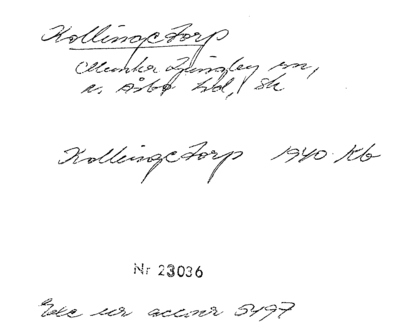 Kollingetorp
Munka Ljungby sn,
n. Åsbo hd, Sk
Kollingetorp 1940 Kb
Nr 23036
Exc ur accnr 5497